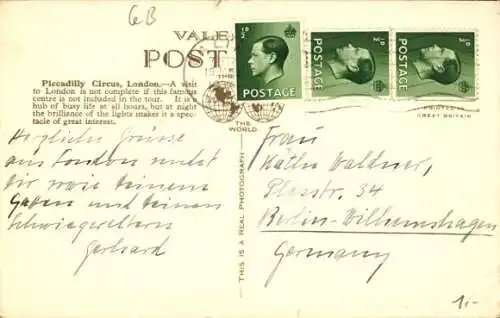 GB
VALE
POST
½D
POSTAGE
½D
POSTAGE
½D
POSTAGE
Piccadilly Circus, London.—A visit
to London is not complete if this famous
centre is not included in the tour. It is a
hub of busy life at all hours, but at night
the brilliance of the lights makes it a spec-
tacle of great interest.
THE
WORLD
PRINTED IN
GREAT BRITAIN
THIS IS A REAL PHOTOGRAPH
Herzliche Grüsse
aus London
dir wie deinem
und deinen
Schwiegereltern
Gerhard
Frau
Käthe Waldner,
34
Berlin-Wilhelmshagen
Germany
1.-